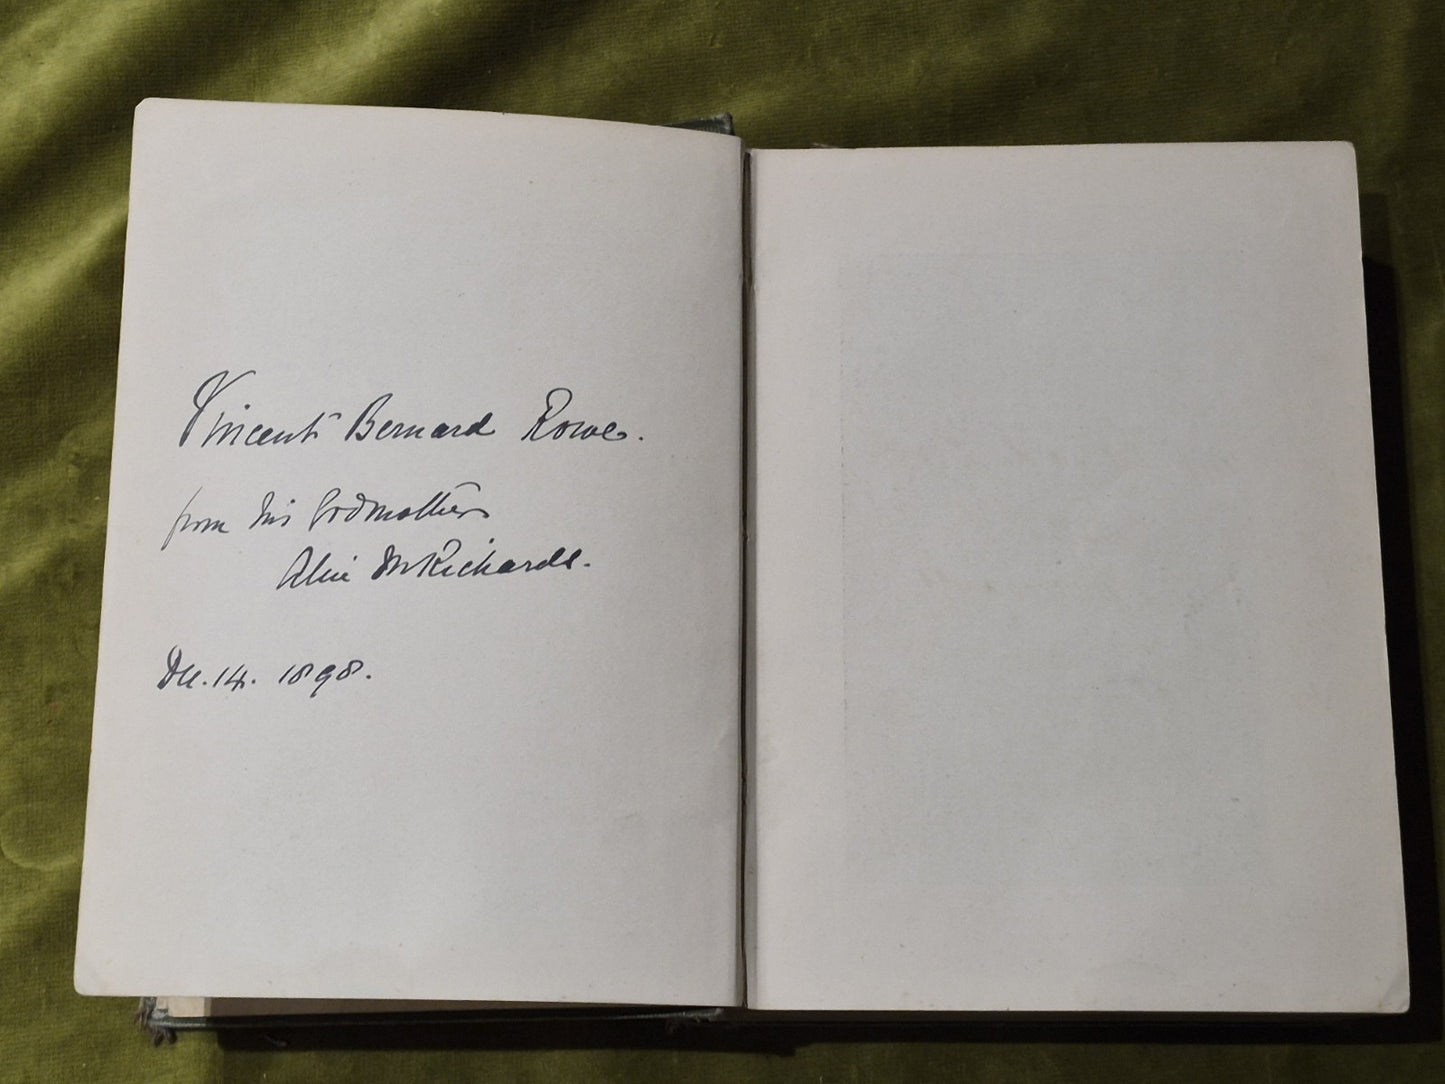 Vincent Bernard Rowe.
from his Godmother
Alice M Richards.
Dec. 14. 1898.